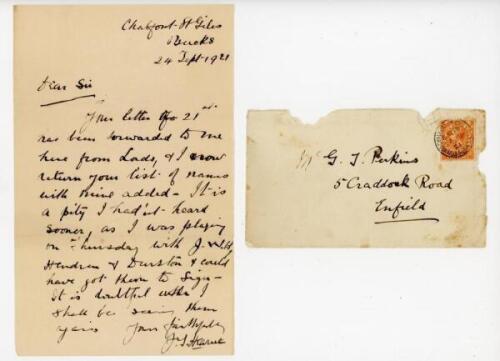 Chalfont St Giles
Bucks
24 Sept 1921
Dear Sir
Your letter of 21st
has been forwarded to me
here from Lords, & I now
return your list of names
with mine added - It is
a pity I had'nt heard
sooner, as I was playing
on Thursday with J. W.
Hendren & Durston & could
have got them to sign -
It is doubtful whether I
shall be seeing them
again Yours faithfully
J. T. Hearne
Mr G. T. Perkins
5 Craddock Road
Enfield